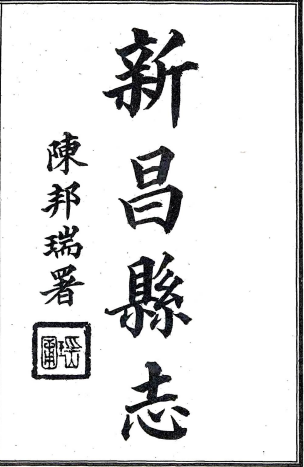 新昌縣志
陳邦瑞署